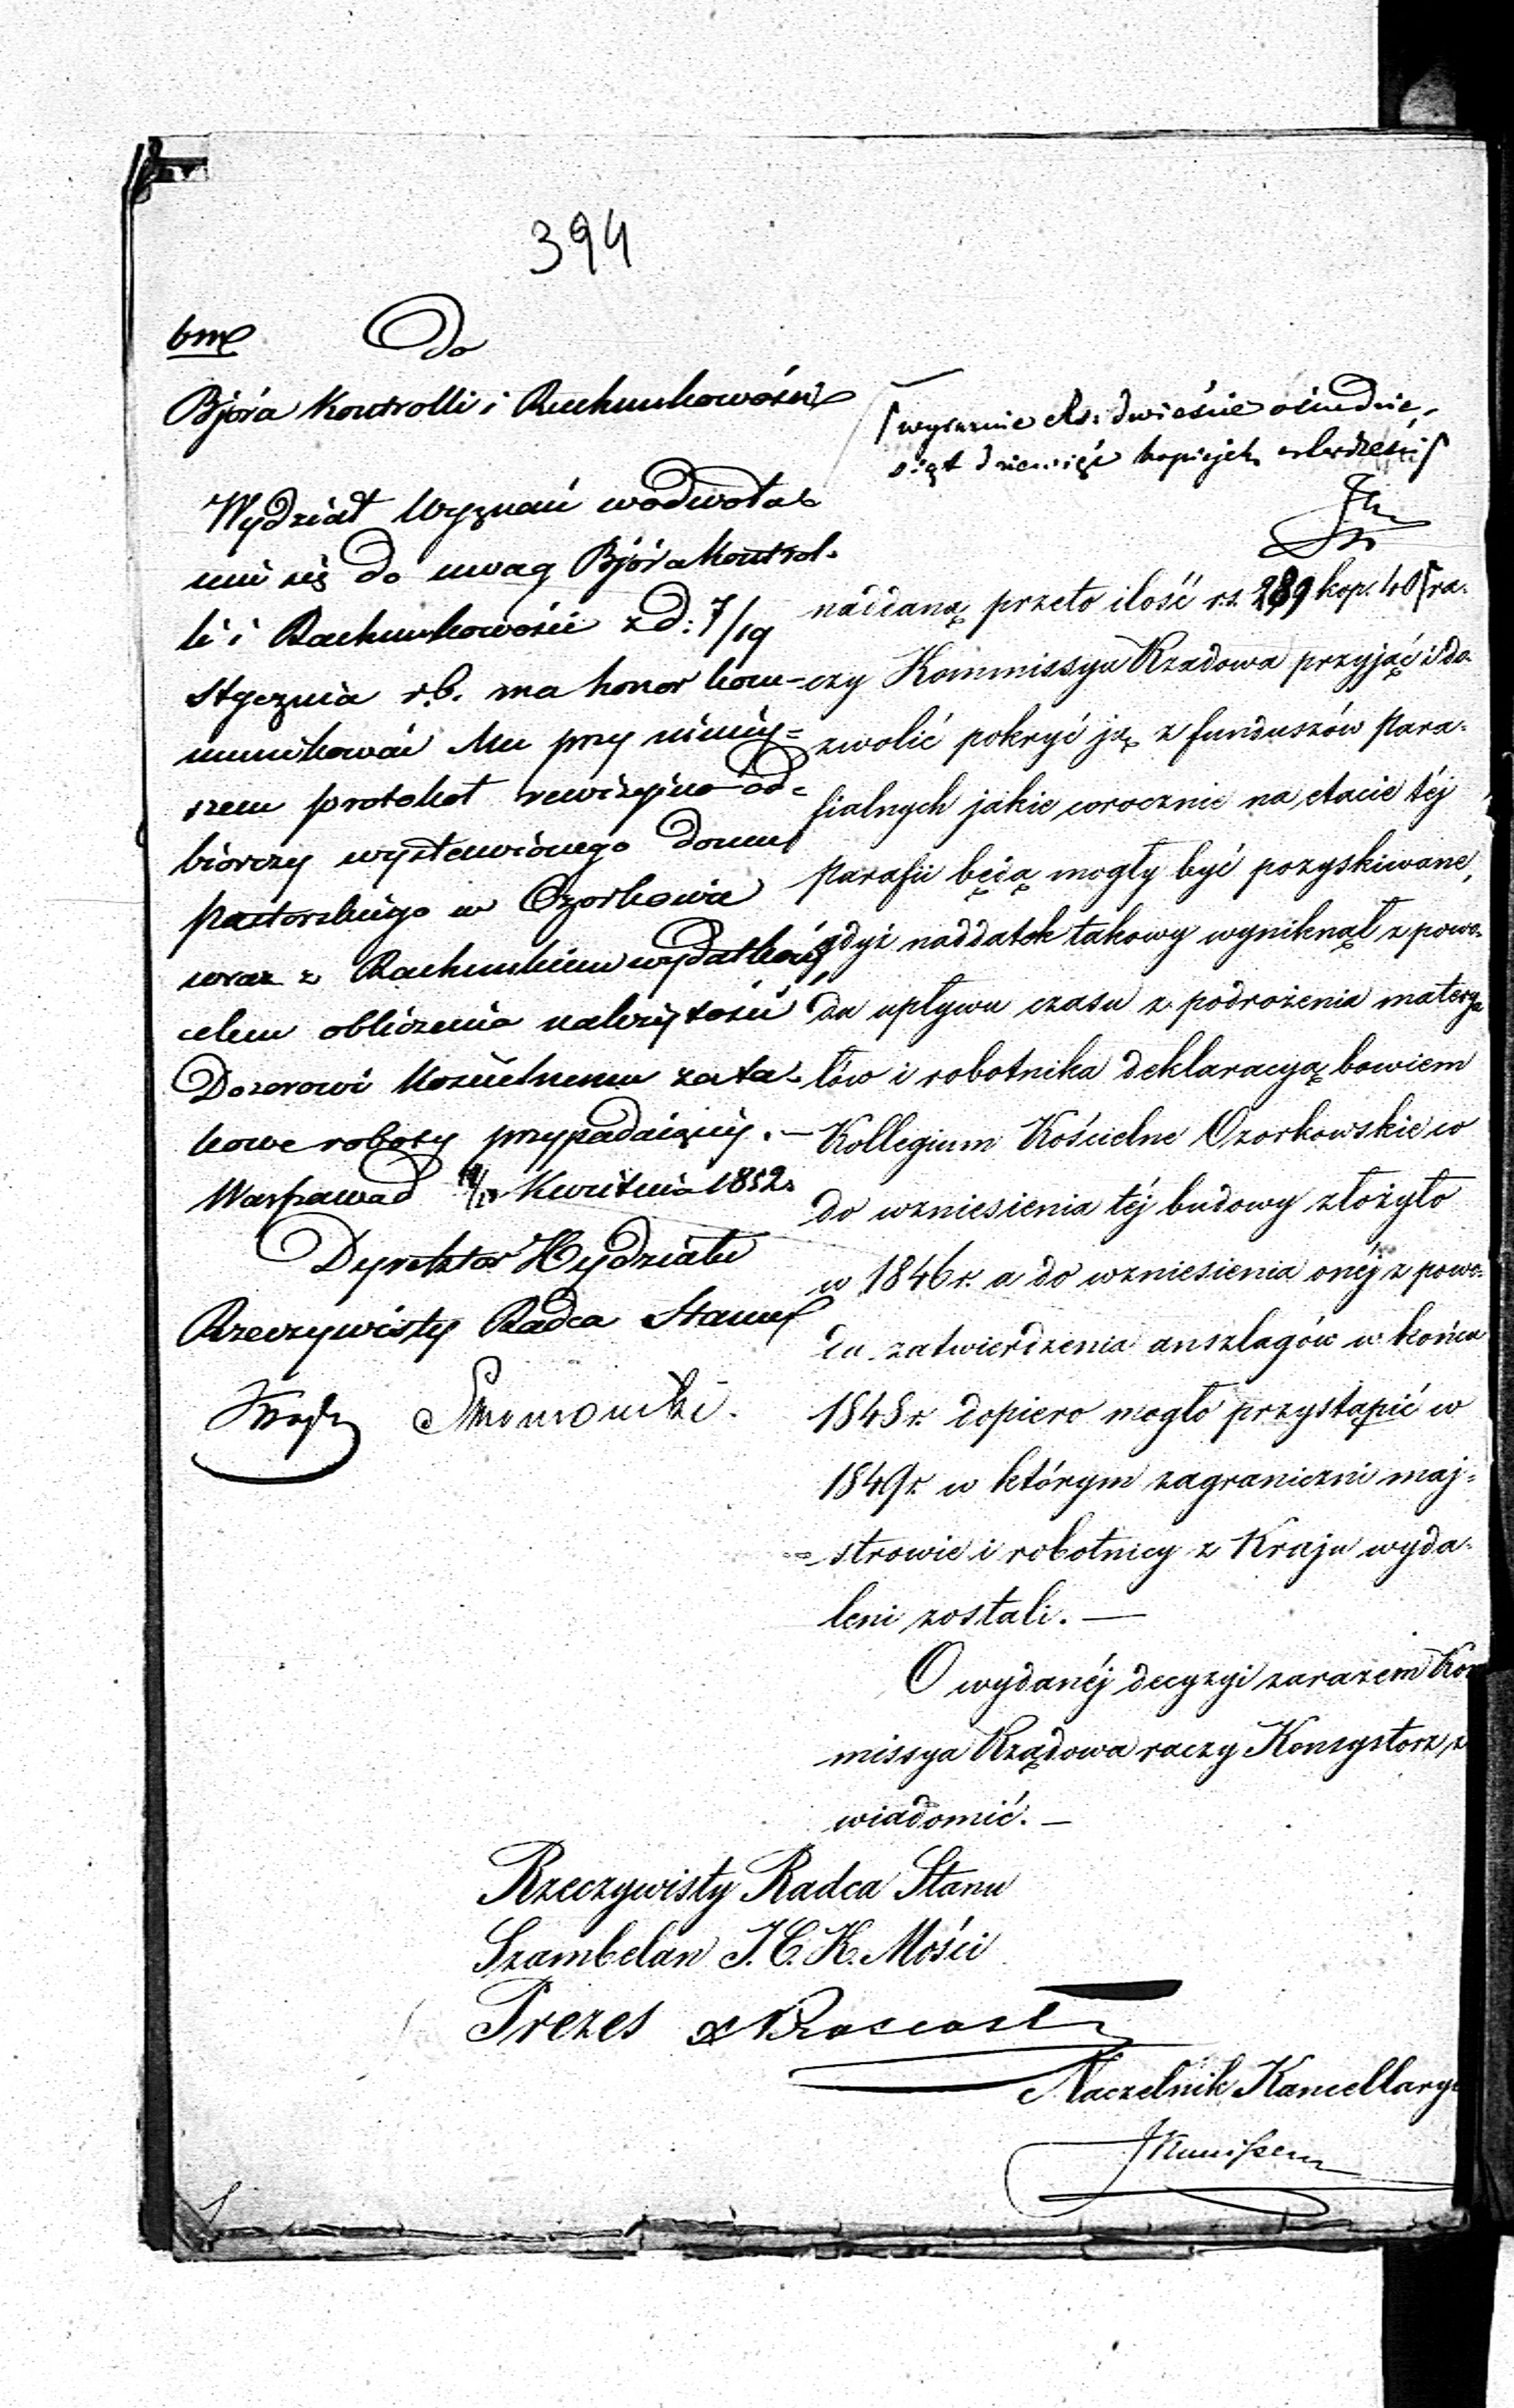 394
bm
Do
Bjóra Kontrolli i Rachunkowości
Wydział Wyznań w odwoła-
niu się do uwag Bjóra Kontrol-
li i Rachunkowości z d: 7/19
Stycznia r.b. ma honor kom-
munikować Mu przy niniej=
szem protokół rewizyjno-od-
biorczy wystawionego domu
pastorskiego w Ozorkowie
wraz z Rachunkiem wydatków
celem obliczenia należytości
Dozorowi Kościelnemu za ta-
kowe roboty przypadającéj. —
Warszawa d Kwietnia 1852.
Dyrektor Wydziału
Rzeczywisty Radca Stanu
wyraźnie Rs: dwieście ośmdzie-
siąt dziewięć kopiejek czterdzieści
naddaną przeto ilość r.s. 289 kop. 40 ra-
czy Kommissya Rządowa przyjąć i do-
zwolić pokryć ją z funduszów para-
fialnych jakie corocznie na etacie téj
parafii będą mogły być pozyskiwane,
gdyż naddatek takowy wyniknął z powo-
du upływu czasu z podrożenia materya
łów i robotnika deklaracyą bowiem
Kollegium Kościelne Ozorkowskie co
do wzniesienia téj budowy złożyło
w 1846 r. a do wzniesienia onéj z powo-
du zatwierdzenia anszlagów w końcu
1848 r. dopiero mogło przystąpić w
1849 r. w którym zagraniczni maj=
strowie i robotnicy z Kraju wyda-
leni zostali. —
O wydanéj decyzyi zarazem Kom
missya Rządowa raczy Konsystorz, z
wiadomić. —
Rzeczywisty Radca Stanu
Szambelan J. C. K. Mości
Prezes
Naczelnik Kancellaryi